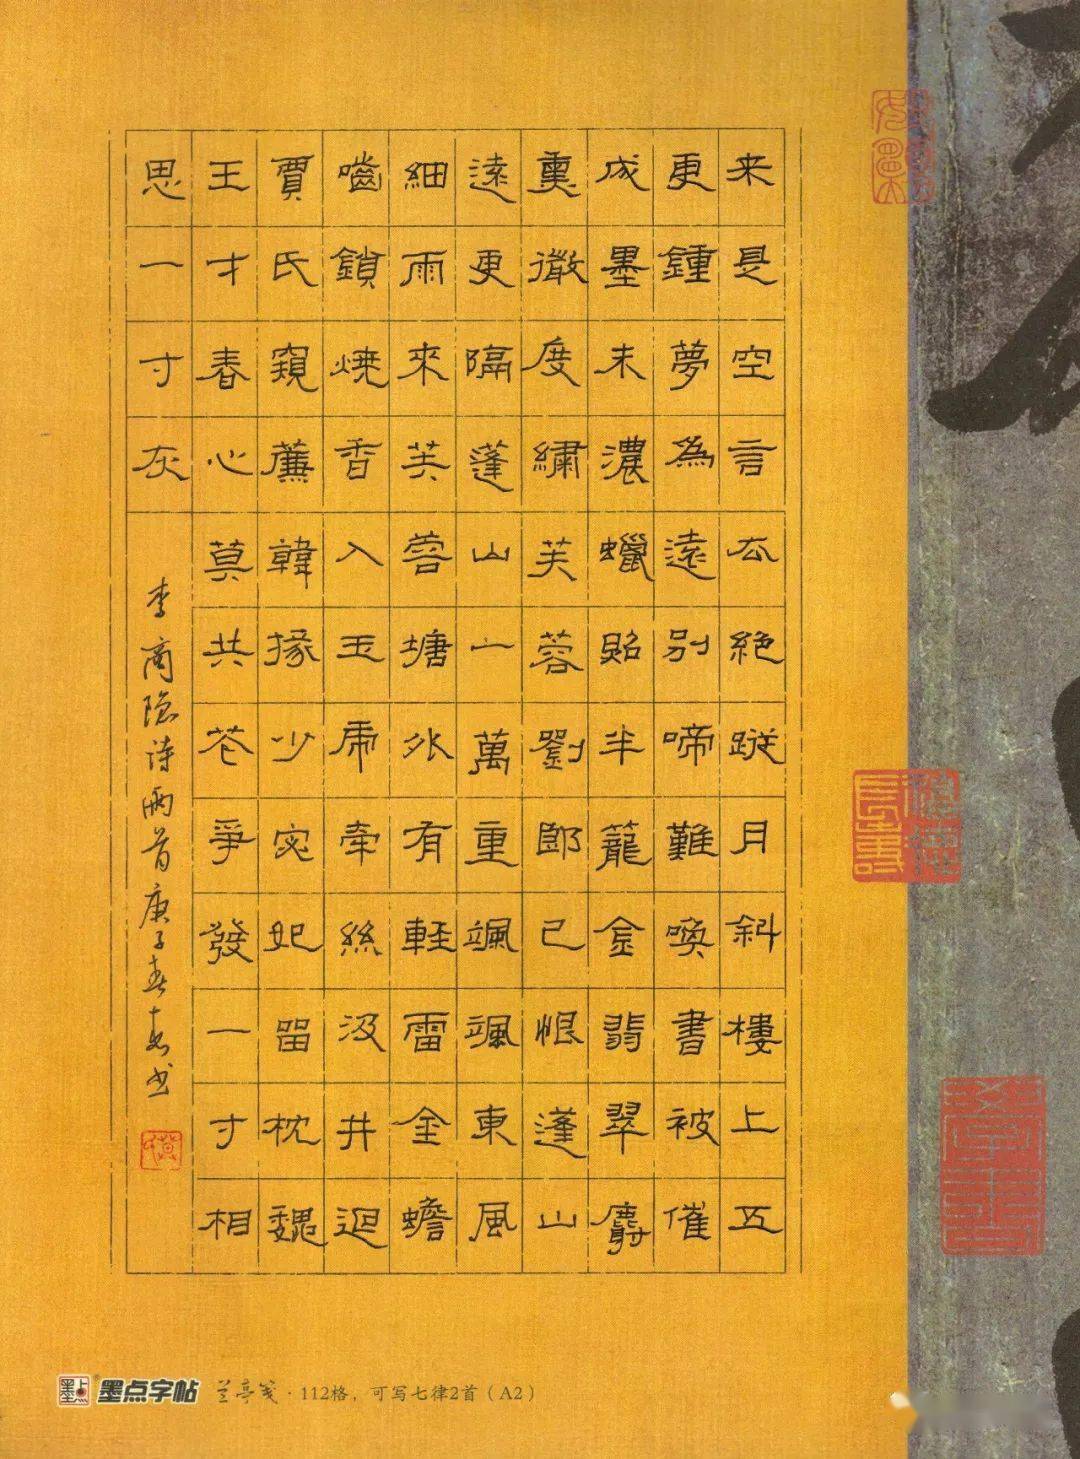 来是空言去絕蹤月斜樓上五
更鍾夢為遠別啼難喚書被催
成墨未濃蠟照半籠金翡翠麝
熏微度繡芙蓉劉郎已恨蓬山
遠更隔蓬山一萬重颯颯東風
細雨來芙蓉塘外有輕雷金蟾
嚙鎖燒香入玉虎牽絲汲井迴
賈氏窺簾韓掾少宓妃留枕魏
王才春心莫共花爭發一寸相
思一寸灰
李商隐诗兩首庚子春书
墨点字帖 兰亭笺·112格，可写七律2首（A2）